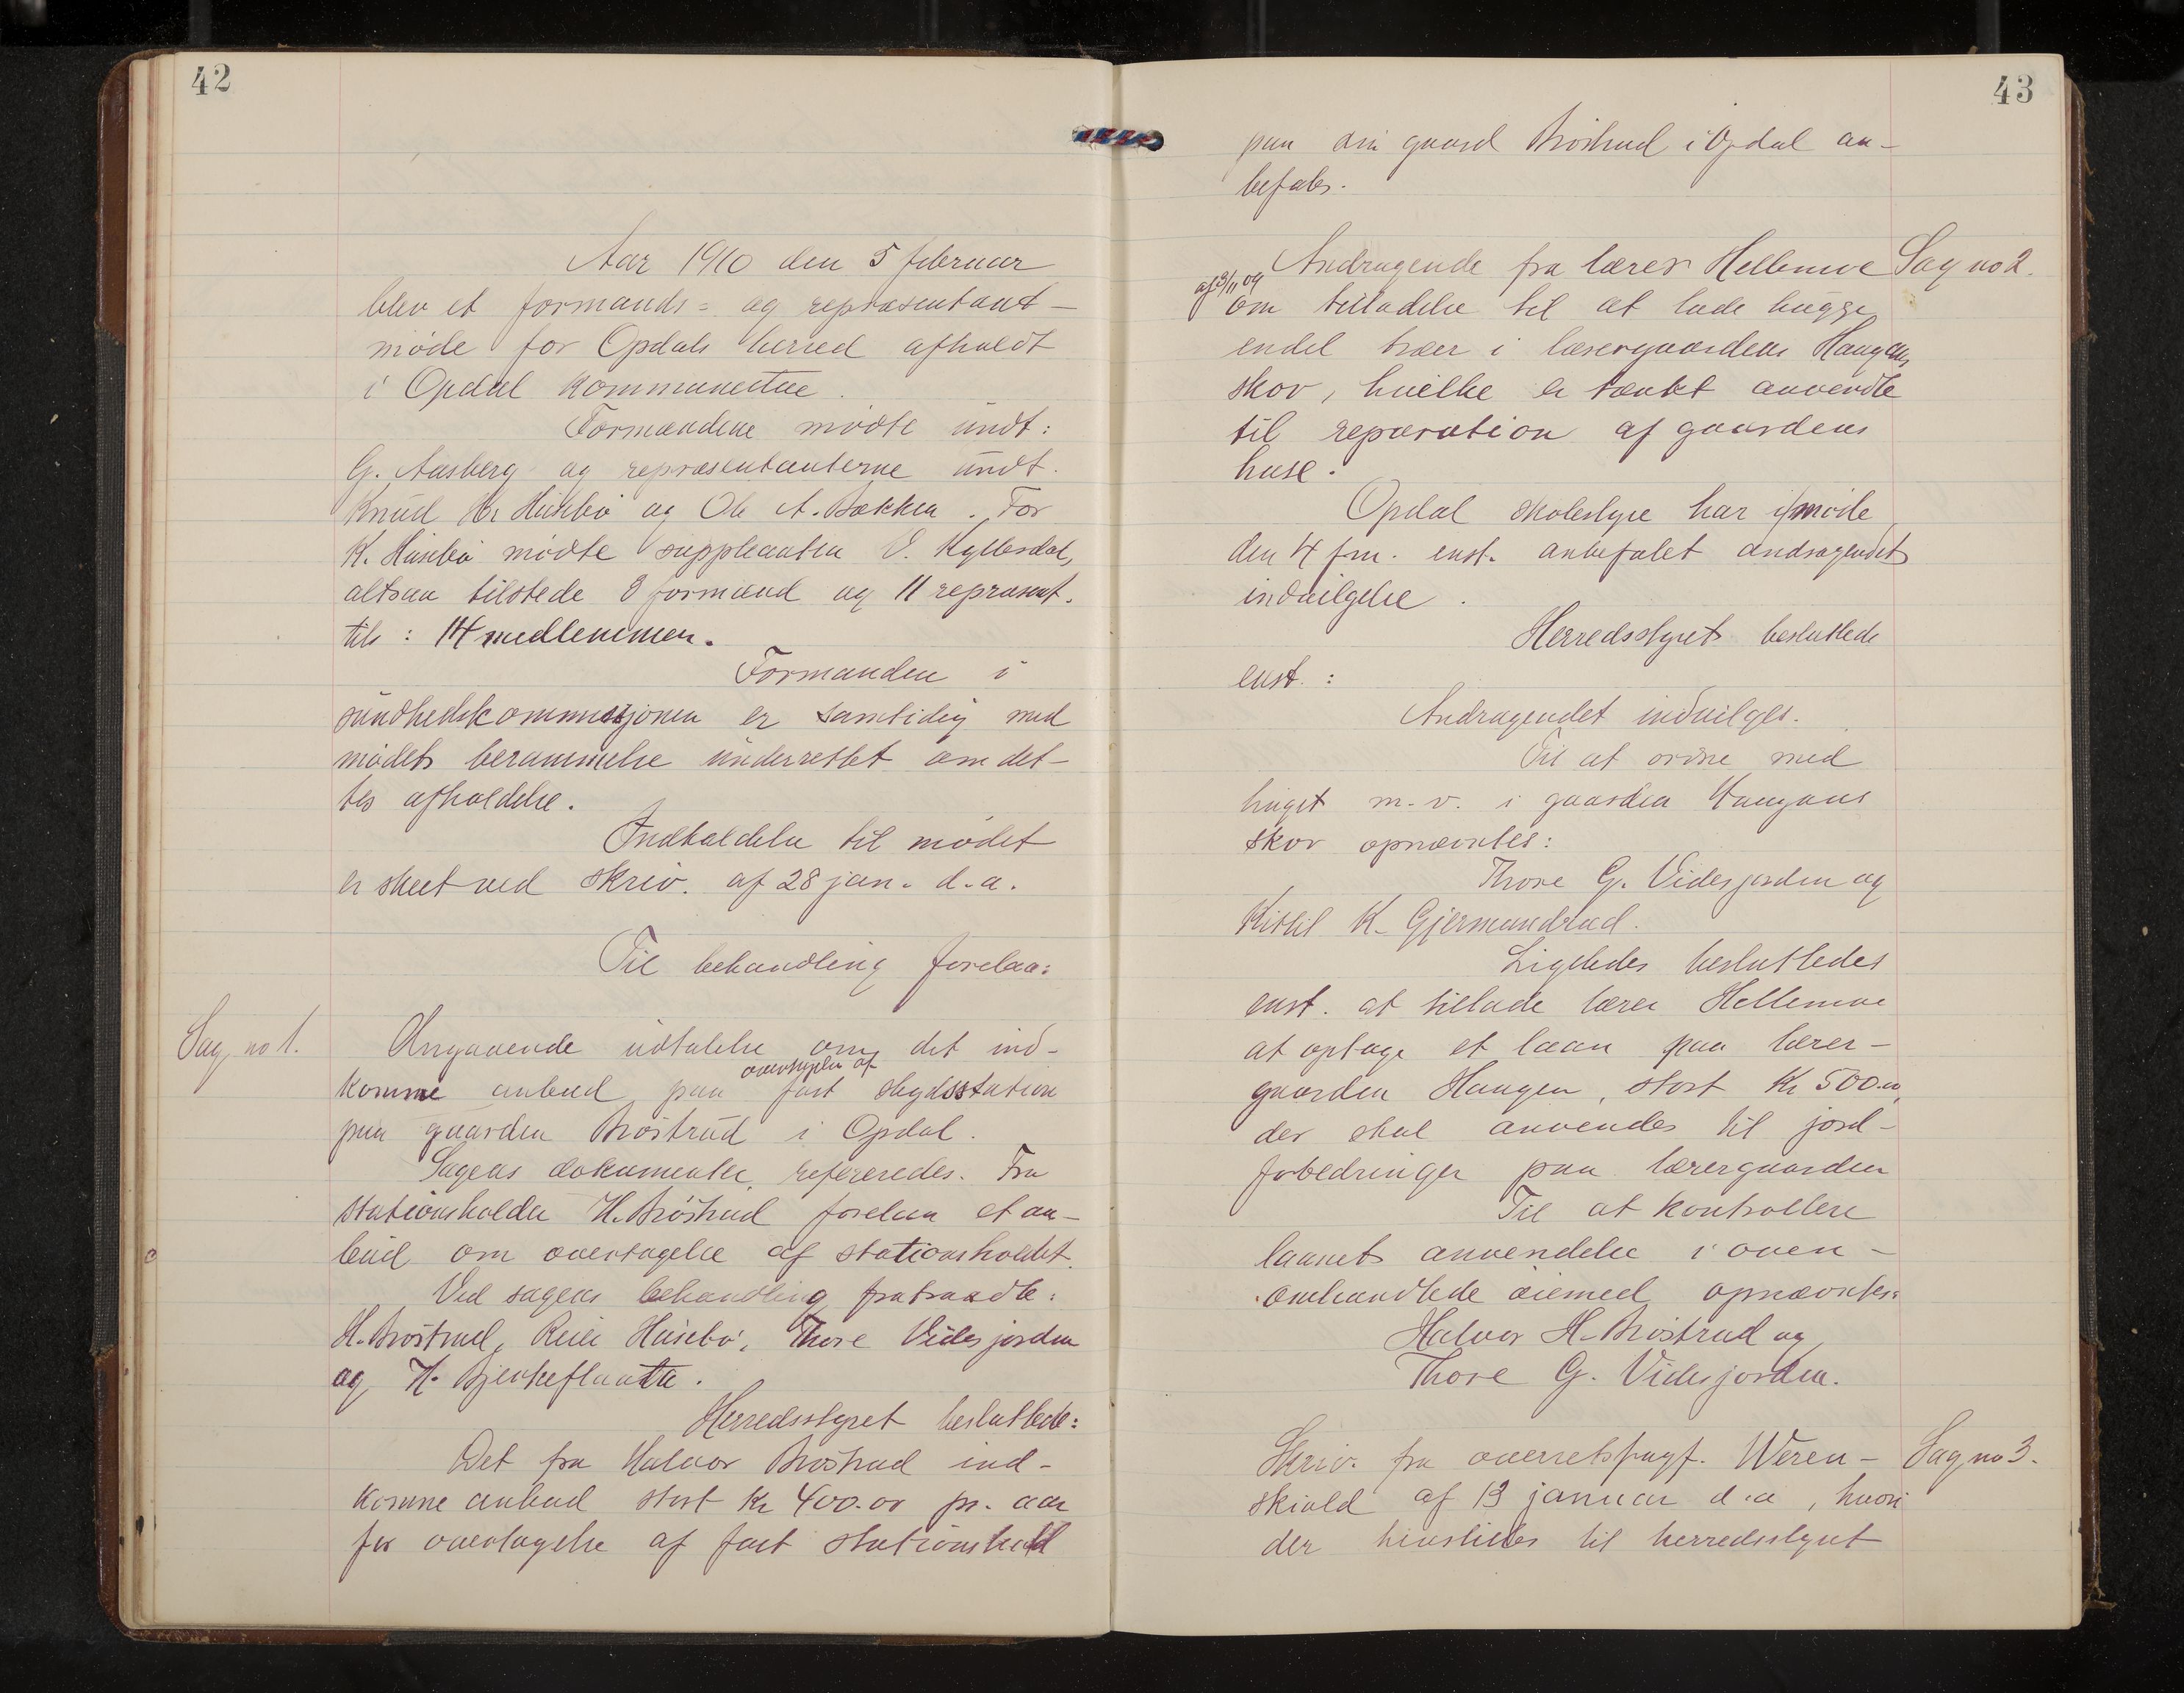 42
Aar 1910 den 5 februar
blev et formands- og repræsentant-
møde for Opdals herred afholdt
i Opdal kommunestue.
Formændene mødte undt:
G. Aasberg og repræsentanterne undt.
Knud Kr. Husebø og Ole A. Bakken. For
K. Husebø mødte suppleanten O. Kyllesdal,
altsaa tilstede 3 formænd og 11 repræsent.
tils: 14 medlemmer.
Formanden i
sundhedskommisjonen er samtidig med
mødets berammelse underrettet om det-
tes afholdelse.
Indkaldelse til mødet
er skeet ved skriv. af 28 jan. d.a.
Til behandling forelaa:
Sag no 1. Angaaende udtalelse om det ind-
overtagelse af
komne anbud paa fast skydsstation
paa gaarden Brøstrud i Opdal.
Sagens dokumenter refereredes. Fra
stationsholder H. Brøstrud forelaa et an-
bud om overtagelse af stationsholdet.
Ved sagens behandling fratraadte:
H. Brøstrud, Husebø, Thore Videsjorden
og H. Bjerkeflaatte.
Herredsstyret besluttede:
Det fra Halvor Brøstrud ind-
komne anbud stort Kr 400.00 pr. aar
for overtagelse af fast stationshold
43
paa sin gaard Brøstrud i Opdal an-
befales.
Andragende fra lærer Hellemoe Sag no 2.
af 3/11 09
om tilladelse til at lade hugge
endel trær i lærergaardens Haugens
skov, hvilke er tænkt anvendte
til reparation af gaardens
huse.
Opdal skolestyre har i møde
den 4 f.m. enst. anbefalet andragendets
indvilgelse.
Herredsstyret besluttede
enst.:
Andragendet indvilges.
Til at ordne med
huget m.v. i gaarden Haugens
skov opnævntes:
Thore G. Videsjorden og
Kittil K. Gjermundrud.
Ligeledes besluttedes
enst. at tillade lærer Hellemoe
at optage et laan paa lærer-
gaarden Haugen, stort Kr 500.00,
der skal anvendes til jord-
forbedringer paa lærergaarden
Til at kontrollere
laanets anvendelse i oven-
omhandlede øiemed opnævntes:
Halvor H. Brøstrud og
Thore G. Videsjorden.
Skriv. fra overretssagf. Weren- Sag no 3.
skiold af 13 januar d.a, hvori
der henstilles til herredsstyret